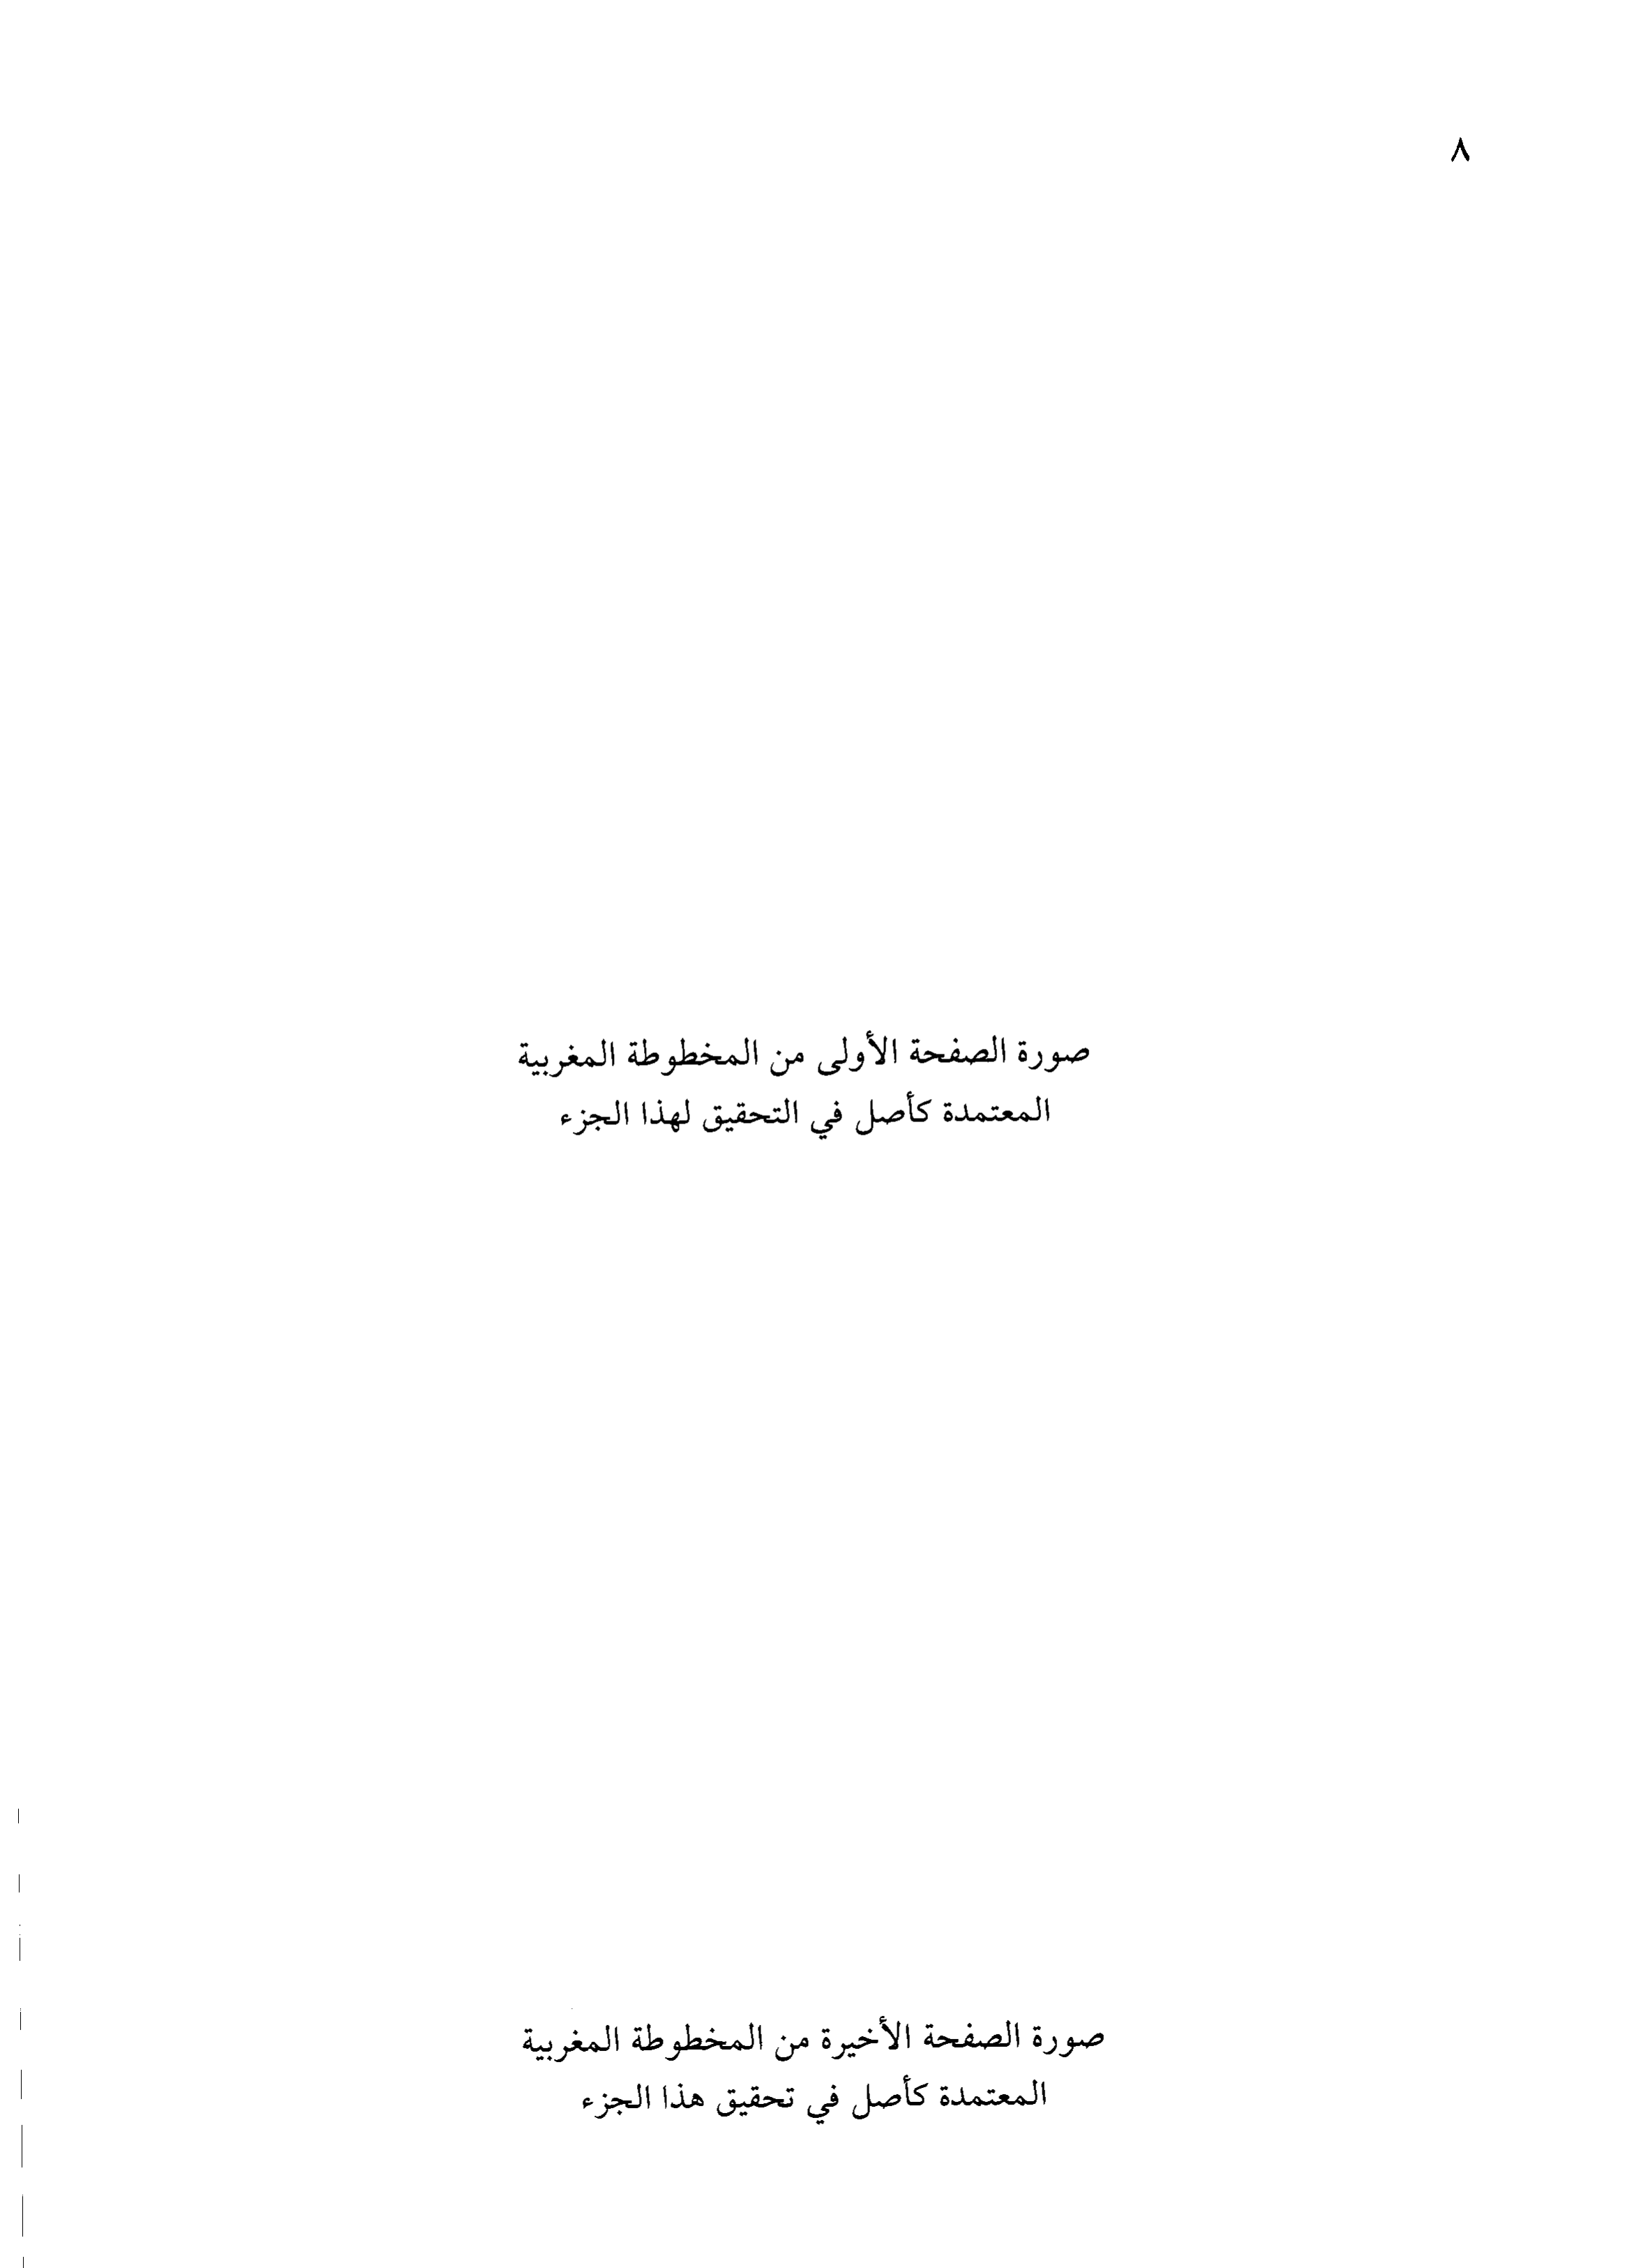 ٨
صورة الصفحة الأولى من المخطوطة المغربية
المعتمدة كأصل في التحقيق لهذا الجزء
صورة الصفحة الأخيرة من المخطوطة المغربية
المعتمدة كأصل في تحقيق هذا الجزء